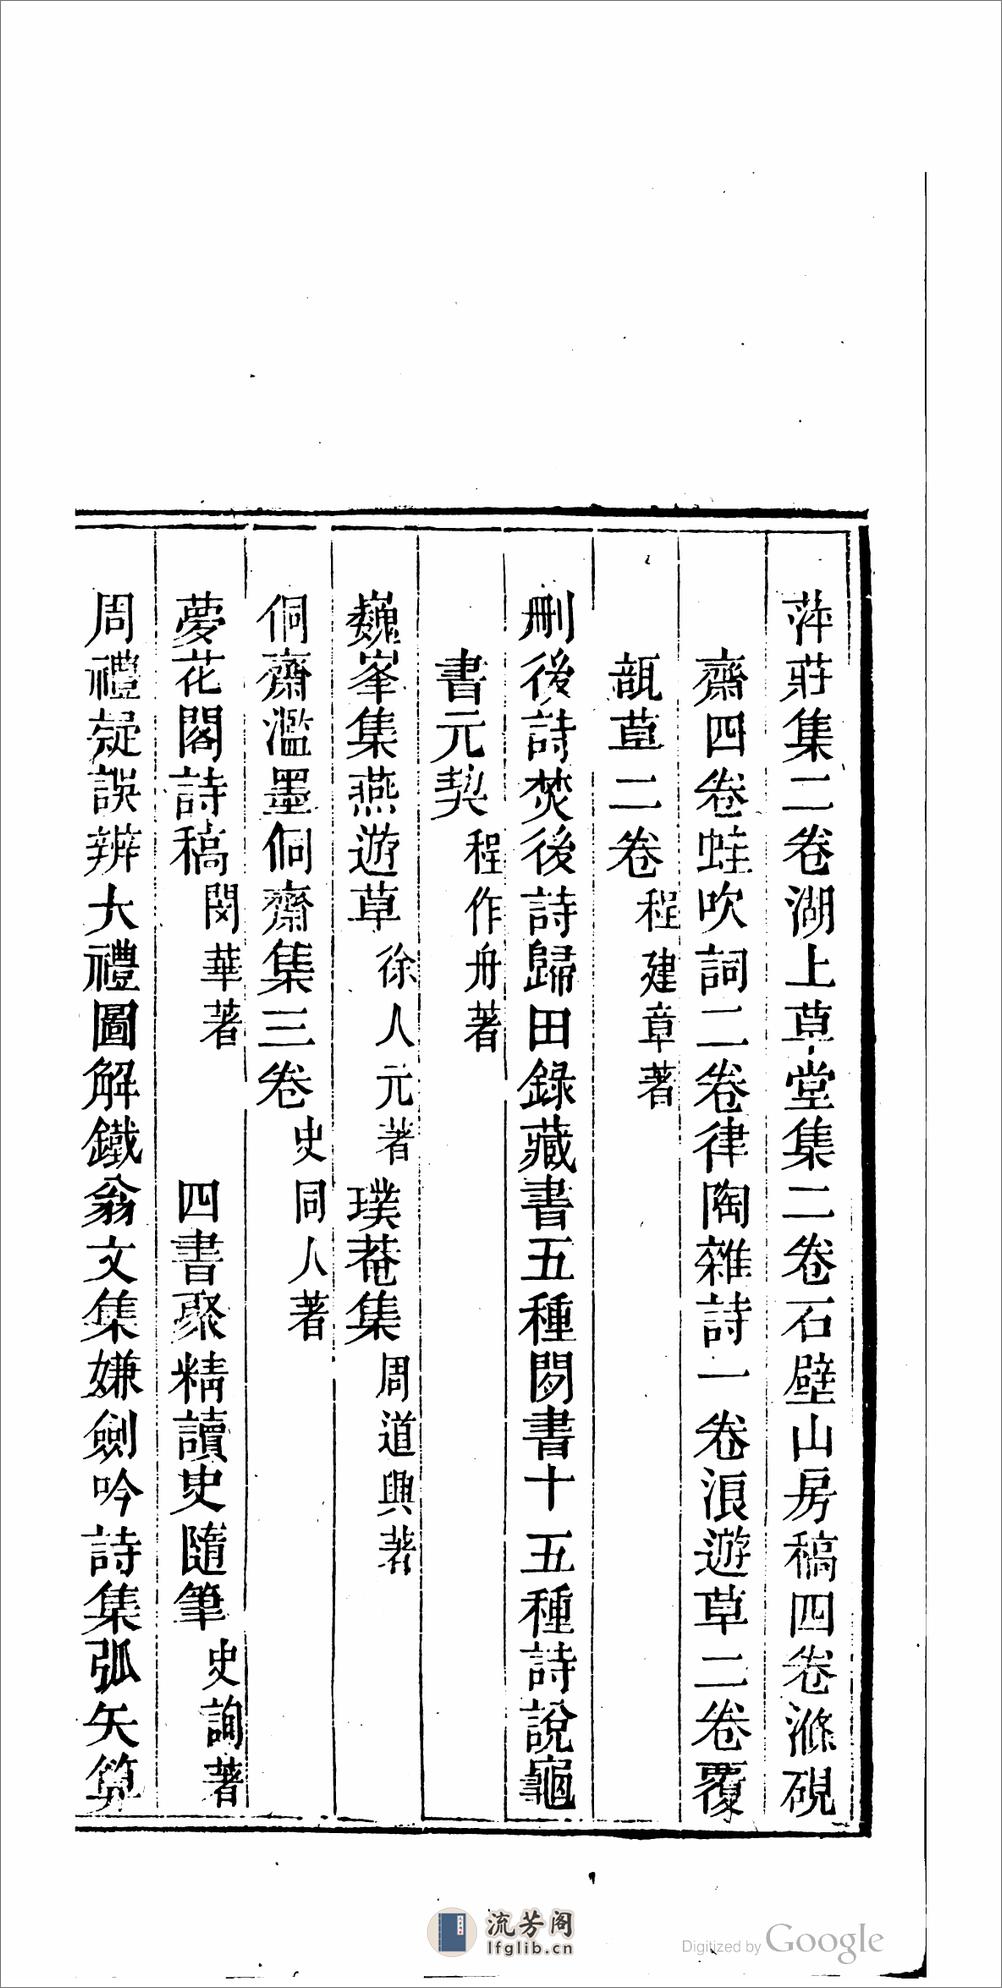 萍莊集二卷湖上草堂集二卷石壁山房稿四卷滌硯
齋四卷蛙吹詞二卷律陶雜詩一卷浪遊草二卷覆
瓿草二卷程建章著
刪後詩焚後詩歸田錄藏書五種閱書十五種詩說龜
書元契程作舟著
巍峯集燕遊草徐人元著 璞菴集周道興著
侗齋濫墨侗齋集三卷史同人著
夢花閣詩稿閔華著 四書聚精讀史隨筆史詢著
周禮疑誤辨大禮圖解鐵翁文集嫌劍吟詩集弧矢算
流芳阁
lfglib.cn
Digitized by Google